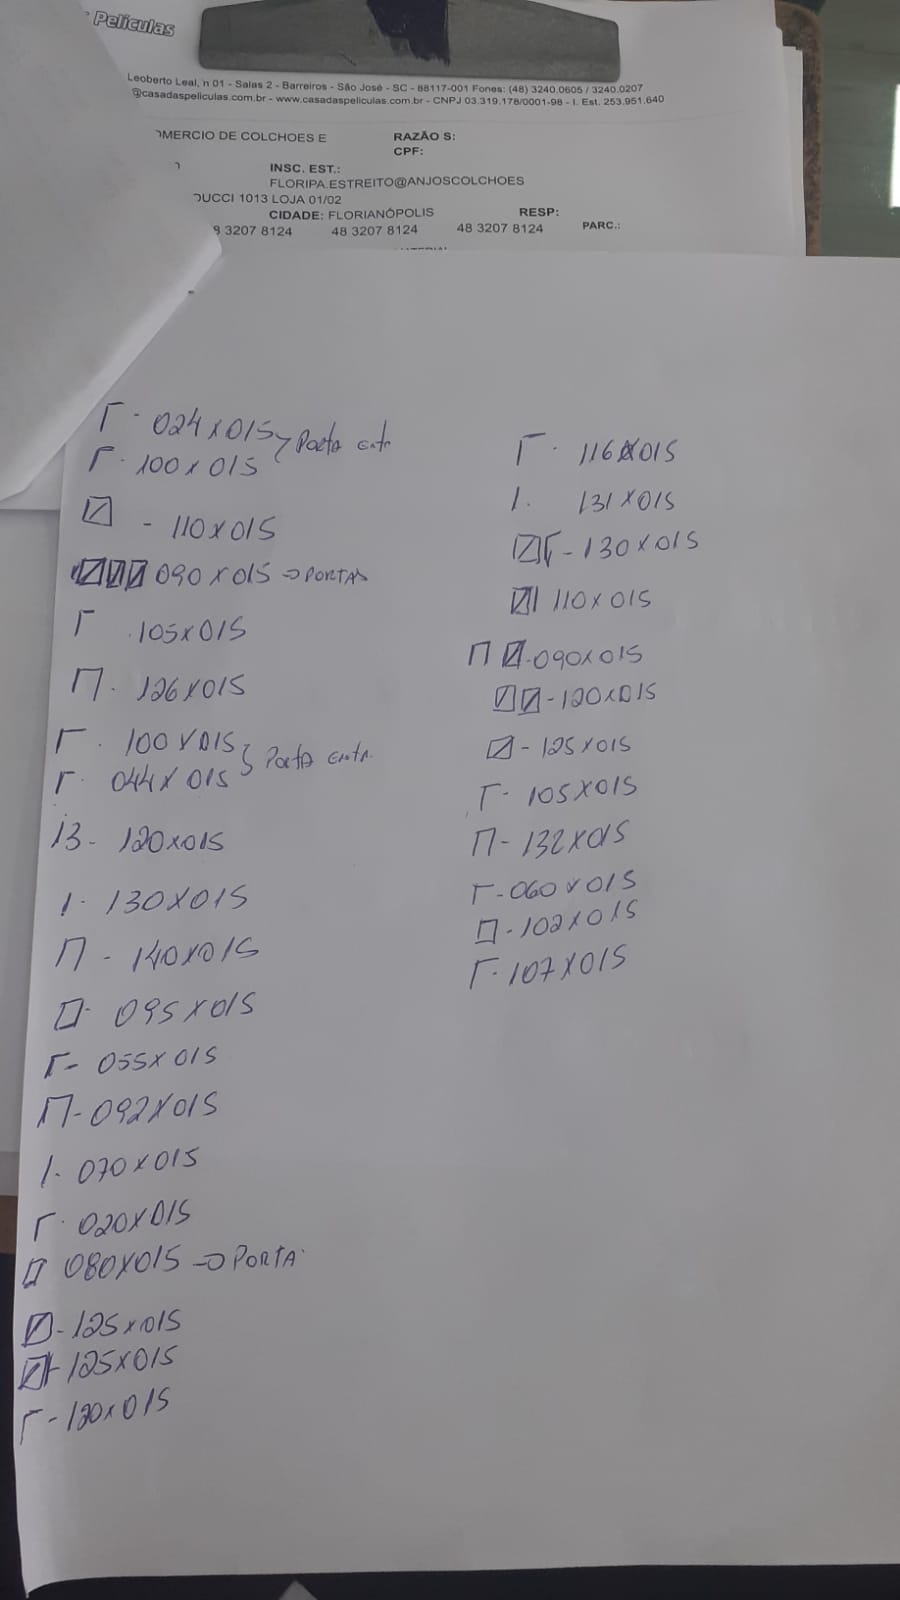 Películas
Leoberto Leal, n 01 - Salas 2 - Barreiros - São José - SC - 88117-001 Fones: (48) 3240.0605 / 3240.0207
@casadaspeliculas.com.br - www.casadaspeliculas.com.br - CNPJ 03.319.178/0001-98 - I. Est. 253.951.640
OMERCIO DE COLCHOES E RAZÃO S:
CPF:
INSC. EST.:
FLORIPA.ESTREITO@ANJOSCOLCHOES
DUCCI 1013 LOJA 01/02
CIDADE: FLORIANÓPOLIS RESP:
8 3207 8124 48 3207 8124 48 3207 8124 PARC.:
024X015 Porta entr
100X015
- 110X015
090X015 → PORTAS
105X015
126X015
100X015 Porta entr.
044X015
13 - 120X015
1 - 130X015
- 140X015
095X015
- 055X015
- 092X015
1 - 070X015
020X015
080X015 → PORTA
- 125X015
- 125X015
- 120X015
116X015
1. 131X015
- 130X015
110X015
- 090X015
- 120X015
- 125X015
- 105X015
- 132X015
- 060X015
- 102X015
- 107X015